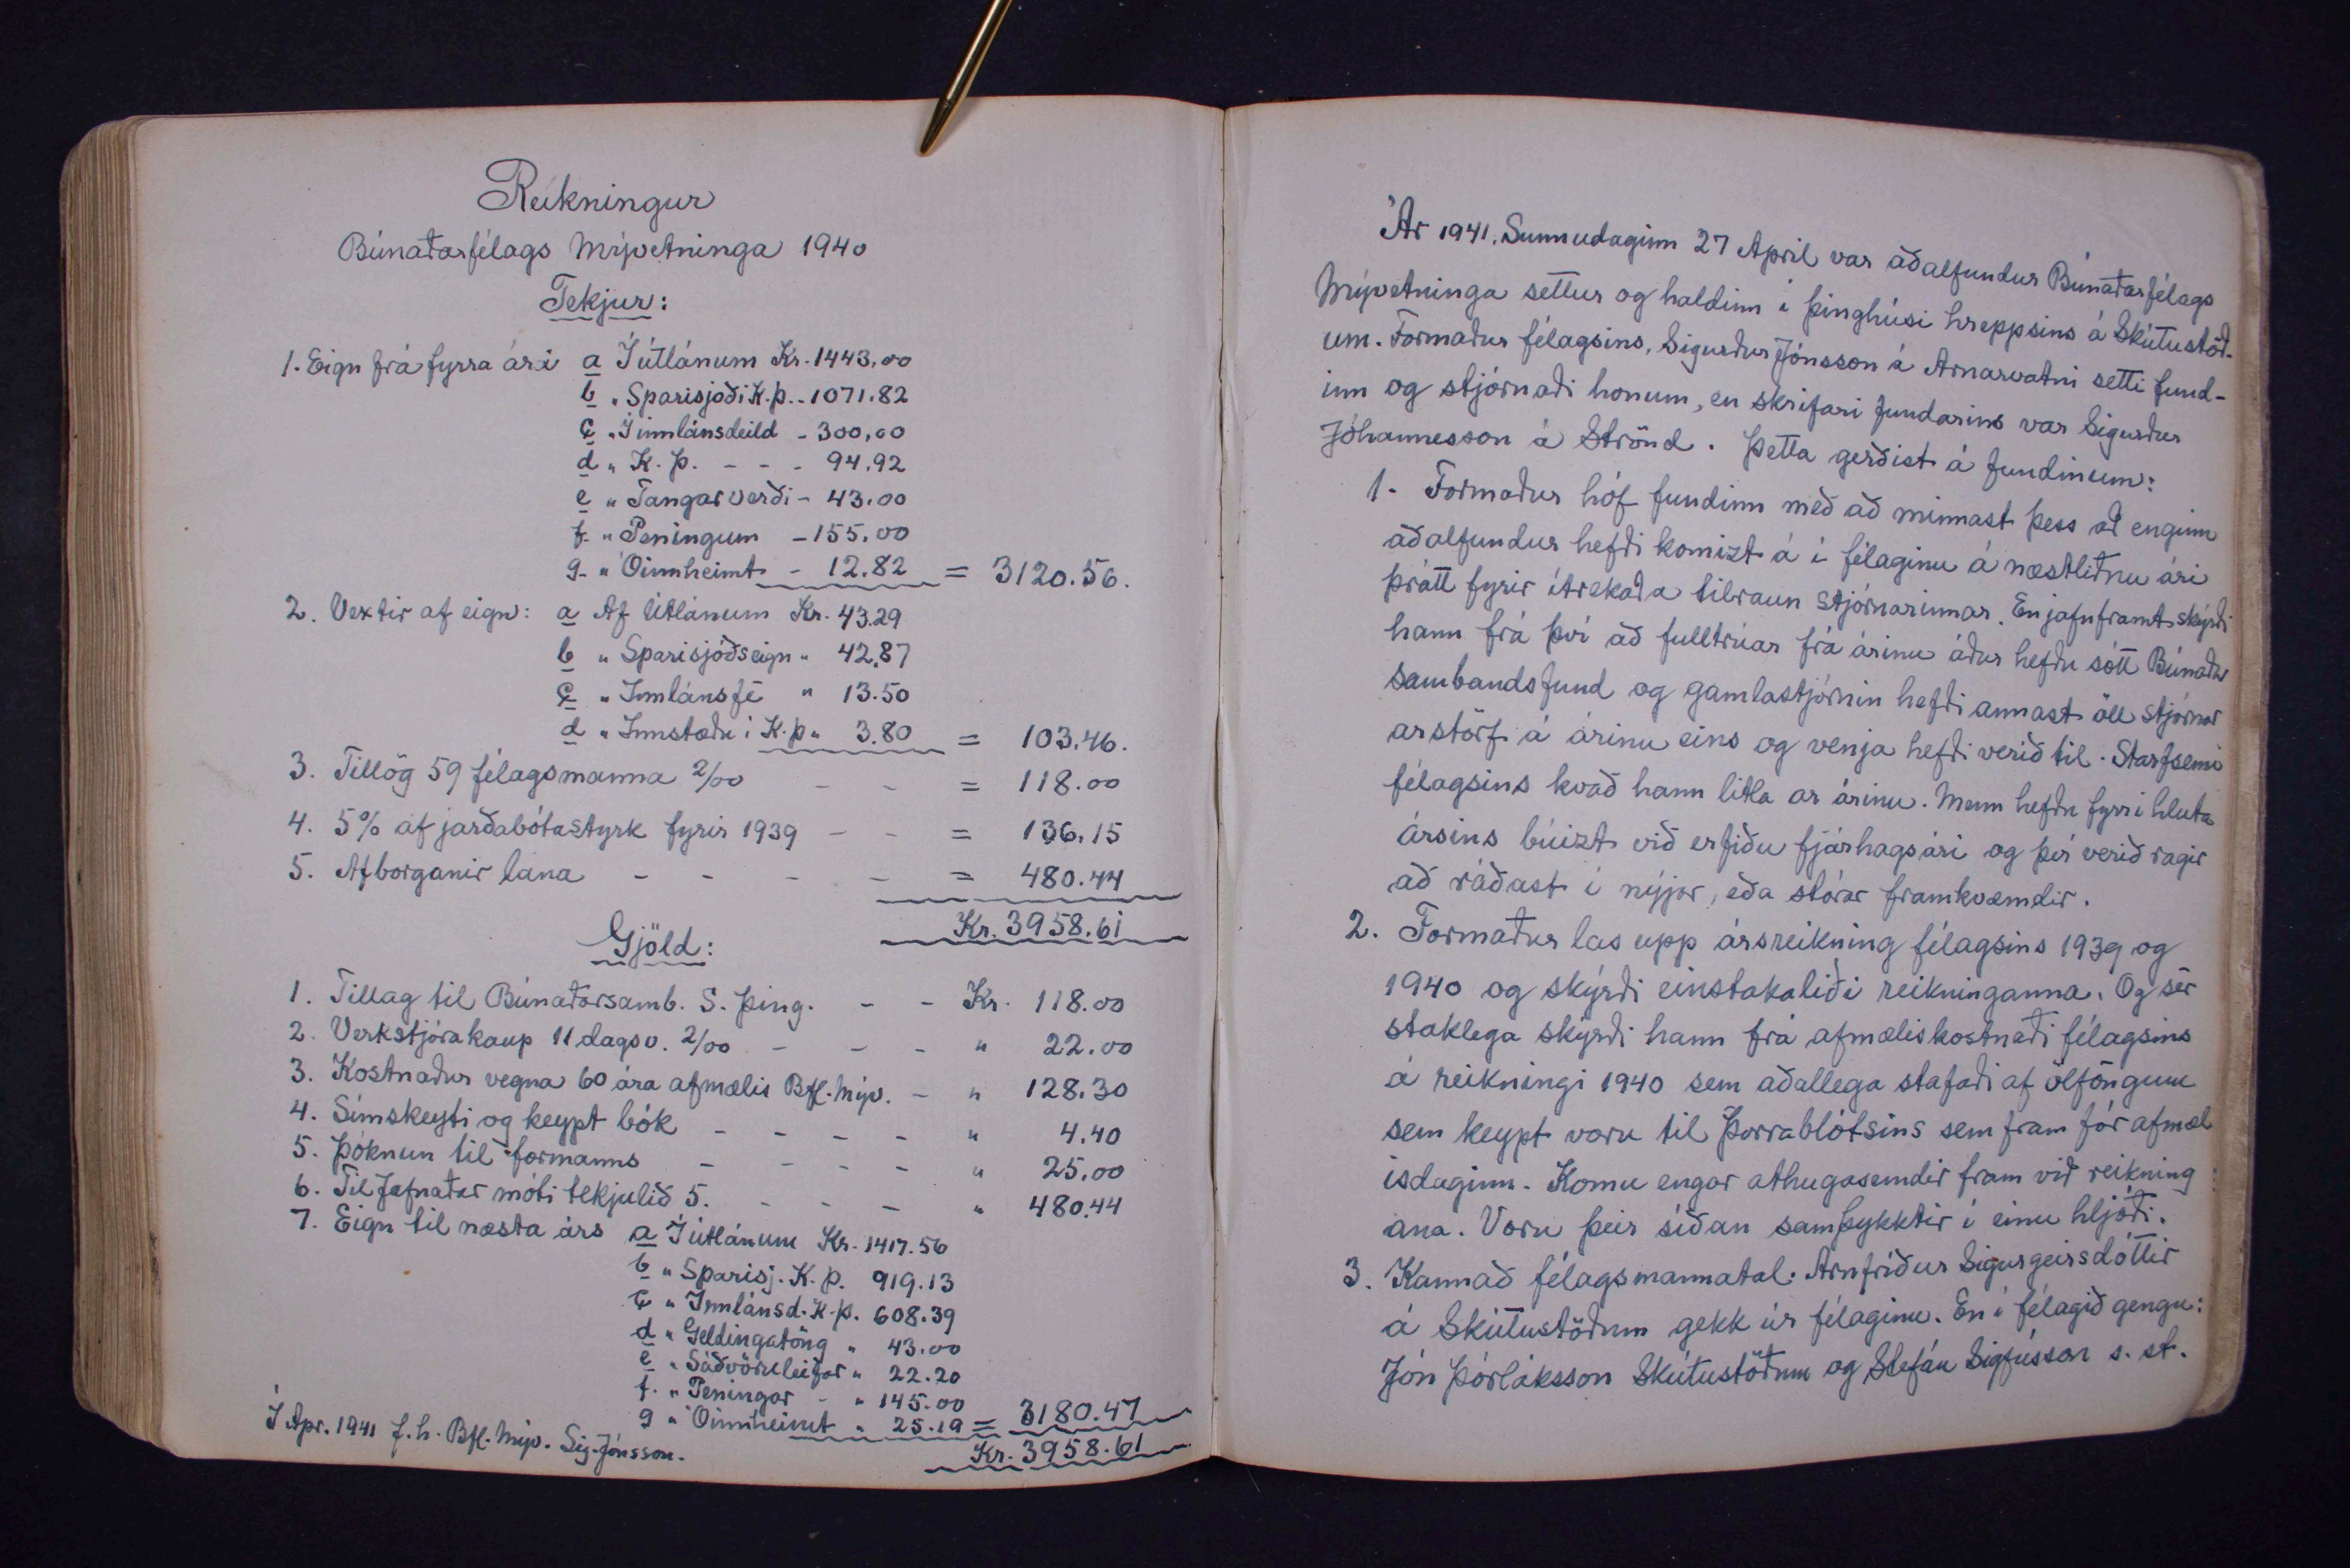 Reikningur
Búnaðarfélags Mývetninga 1940
Tekjur:
1. Eign frá fyrra ári a Í útlánum Kr. 1443,00
b " Sparisjóði K.Þ. - 1071.82
c " Í innlánsdeild - 300,00
d " K.Þ. - - - 94.92
e " Tangarverði - 43.00
f. " Peningum - 155.00
g - " Óinnheimt - 12.82 = 3120.56.
2. Vextir af eign: a Af útlánum Kr. 43.29
b " Sparisjóðseign " 42.87
c " Innlánsfé " 13.50
d " Innstæðu í K.Þ " 3.80 = 103.46.
3. Tillög 59 félagsmanna 2/00 - - = 118.00
4. 5% af jarðabótastyrk fyrir 1939 - - = 136.15
5. Afborganir lána - - - - = 480.44
Kr. 3958.61
Gjöld:
1. Tillag til Búnaðarsamb. S. Þing. - - Kr. 118.00
2. Verkstjórakaup 11 dagsv. 2/00 - - - " 22.00
3. Kostnaður vegna 60 ára afmælis Bfl. Mýv. - " 128.30
4. Símskeyti og keypt bók - - - - " 4.40
5. Þóknun til formanns - - - - " 25.00
6. Til Jafnaðar móti tekjulið 5. - - - " 480.44
7. Eign til næsta árs a Í útlánum Kr. 1417.56
b " Sparisj. K.Þ. 919.13
c " Innlánsd. K.Þ. 608.39
d " Geldingatöng " 43.00
e " Sáðvöruleifar " 22.20
f. " Peningar - " 145.00
g " Óinnheimt " 25.19 = 3180.47
Kr. 3958.61
Í Apr. 1941 f.h. Bfl. Mýv. Sig. Jónsson.
Ár 1941. Sunnudaginn 27 April var aðalfundur Búnaðarfélags
Mývetninga settur og haldinn í þinghúsi hreppsins á Skútustöð-
um. Formaður félagsins, Sigurður Jónsson á Arnarvatni setti fund-
inn og stjórnaði honum, en skrifari fundarins var Sigurður
Jóhannesson á Strönd. Þetta gerðist á fundinum:
1. Formaður hóf fundinn með að minnast þess að enginn
aðalfundur hefði komizt á í félaginu á næstliðnu ári
þrátt fyrir ítrekaða tilraun stjórnarinnar. En jafnframt skýrði
hann frá því að fulltrúar frá árinu áður hefðu sótt Búnaðar
sambandsfund og gamlastjórnin hefði annast öll stjórnar
arstörf á árinu eins og venja hefði verið til. Starfsemi
félagsins kvað hann litla ar árinu. Menn hefðu fyrri hluta
ársins búizt við erfiðu fjárhagsári og því verið ragir
að ráðast í nýjar, eða stórar framkvæmdir.
2. Formaður las upp ársreikning félagsins 1939 og
1940 og skýrði einstakaliði reikninganna. Og sér
staklega skýrði hann frá afmæliskostnaði félagsins
á reikningi 1940 sem aðallega stafaði af ölföngum
sem keypt voru til Þorrablótsins sem fram fór afmæl
isdaginn. Komu engar athugasemdir fram við reikning
ana. Voru þeir síðan samþykktir í einu hljóði.
3. Kannað félagsmannatal. Arnfríður Sigurgeirsdóttir
á Skútustöðum gekk úr félaginu. En í félagið gengu:
Jón Þórláksson Skútustöðum og Stefán Sigfússon s. st.